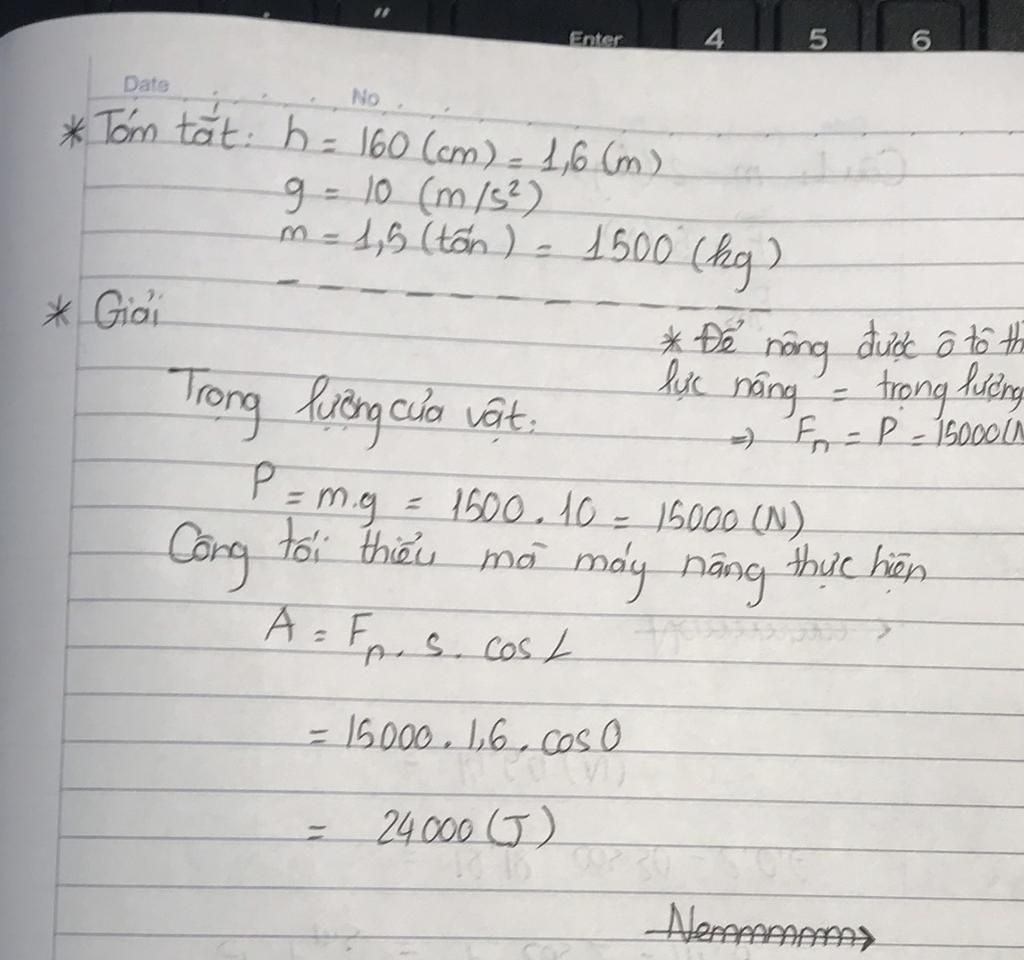 "
Enter 4 5 6
Date No
* Tóm tắt: h = 160 (cm) = 1,6 (m)
g = 10 (m/s²)
m = 1,5 (tấn) = 1500 (kg)
* Giải
* Để nâng được ô tô th
lực nâng = trọng lượng
=> Fₙ = P = 15000(N
Trọng lượng của vật:
P = m.g = 1500 . 10 = 15000 (N)
Công tối thiểu mà máy nâng thực hiện
A = Fₙ. s. cos α
= 15000. 1,6. cos 0
= 24000 (J)